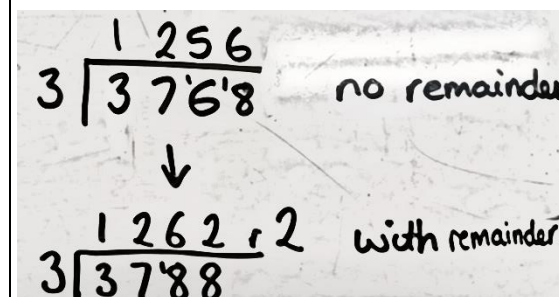 1 2 5 6
3 3 7 '6 '8 no remainder
↓
1 2 6 2 r 2 with remainder
3 3 7 '8 8